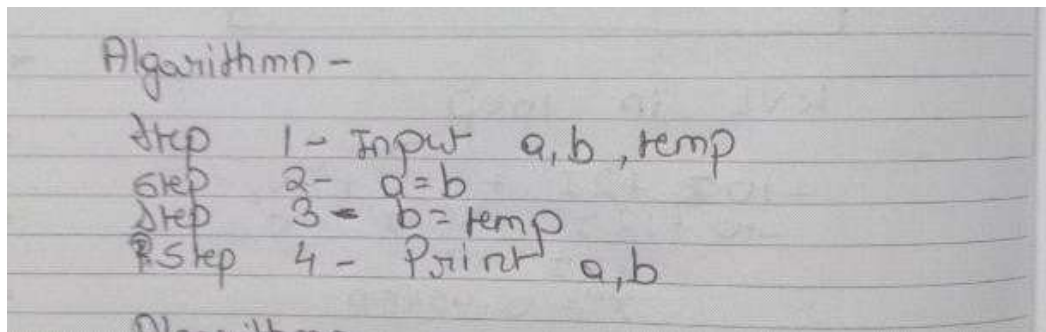 Algarithmn -
Step 1 - Input a, b, temp
Step 2 - a = b
Step 3 - b = temp
Step 4 - Print a, b